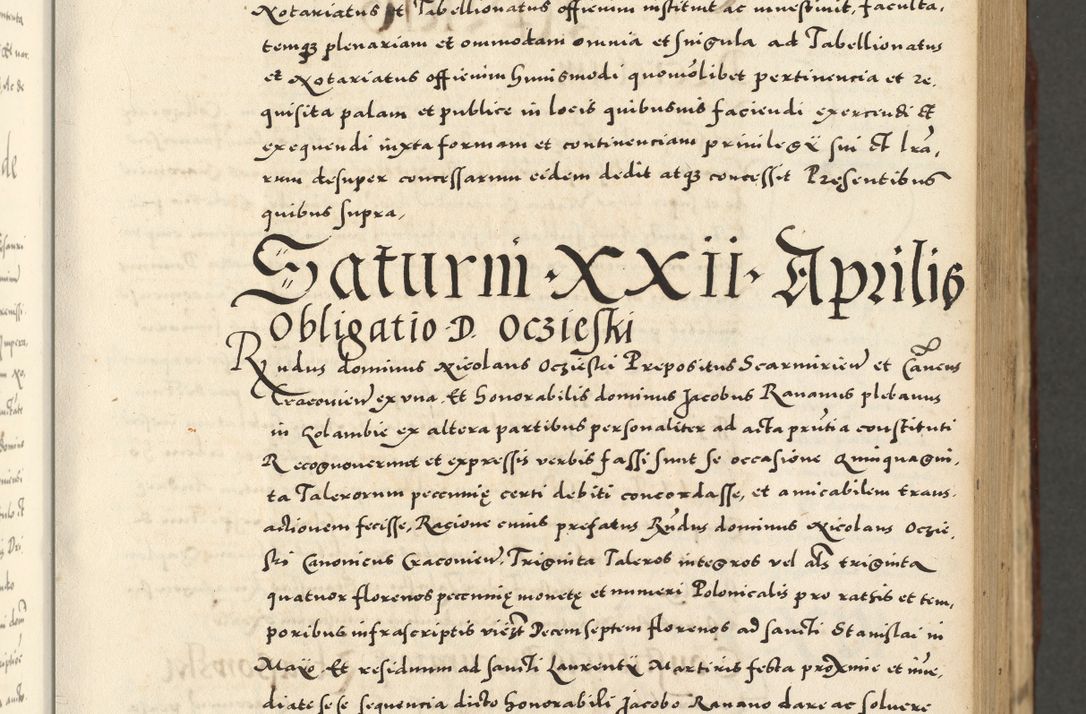 Notariatus et Tabellionatus officium instituit ac investivit, faculta,
temqȝ plenariam et ommodam omnia et singula ad Tabellionatus
et Notariatus officium huiusmodi quomolibet pertinencia et re,
quisita palam et publice in locis quibusuis faciendi exercendi et
exequendi iuxta formam et continenciam priuilegii sui et lrā,
rum desuper concessarum eedem dedit atqȝ concessit Presentibus
quibus supra,
Saturni · XXII · Aprilis
Obligatio D. Oczieski
Rndus dominus Nicolaus Oczieski Prepositus Scarmirien et Cancus
Cracovien ex vna. Et honorabilis dominus Jacobus Rananus plebanus
in Golambie ex altera partibus personaliter ad acta prntia constituti
Recognouerunt et expressis verbis fassi sunt se occasione Quinquagin,
ta Talerorum peccunię certi debiti concordasse, et amicabilem trans,
actionem fecisse, Racione cuius prefatus Rndus dominus Nicolaus Oczie,
ski Canonicus Cracovien, Triginta Taleros integros vel als triginta
quatuor florenos peccunię monetę et numeri Polonicalis pro rathis et tem,
poribus infrascriptis videlt Decem septem florenos ad sancti Stanislai in
Maÿo Et residuum ad sancti Laurentÿ Martiris festa proxime et imē,
diate se se sequencia dicto honorabili Jacobo Ranano dare ac soluere